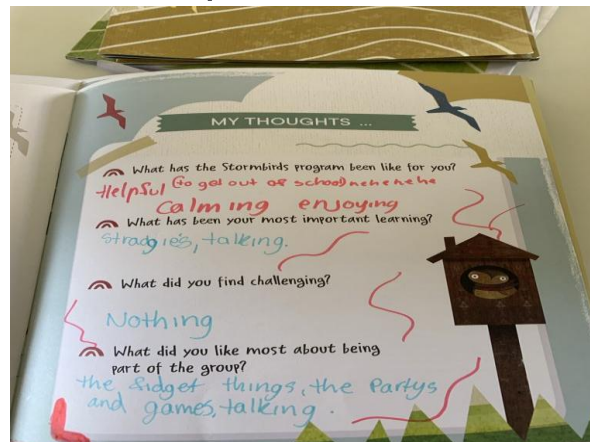 MY THOUGHTS ...
What has the Stormbirds program been like for you?
Helpful (to get out of school) nehehehe
calming enjoying
What has been your most important learning?
stradgies, talking.
What did you find challenging?
Nothing
What did you like most about being
part of the group?
the fidget things, the Partys
and games, talking.